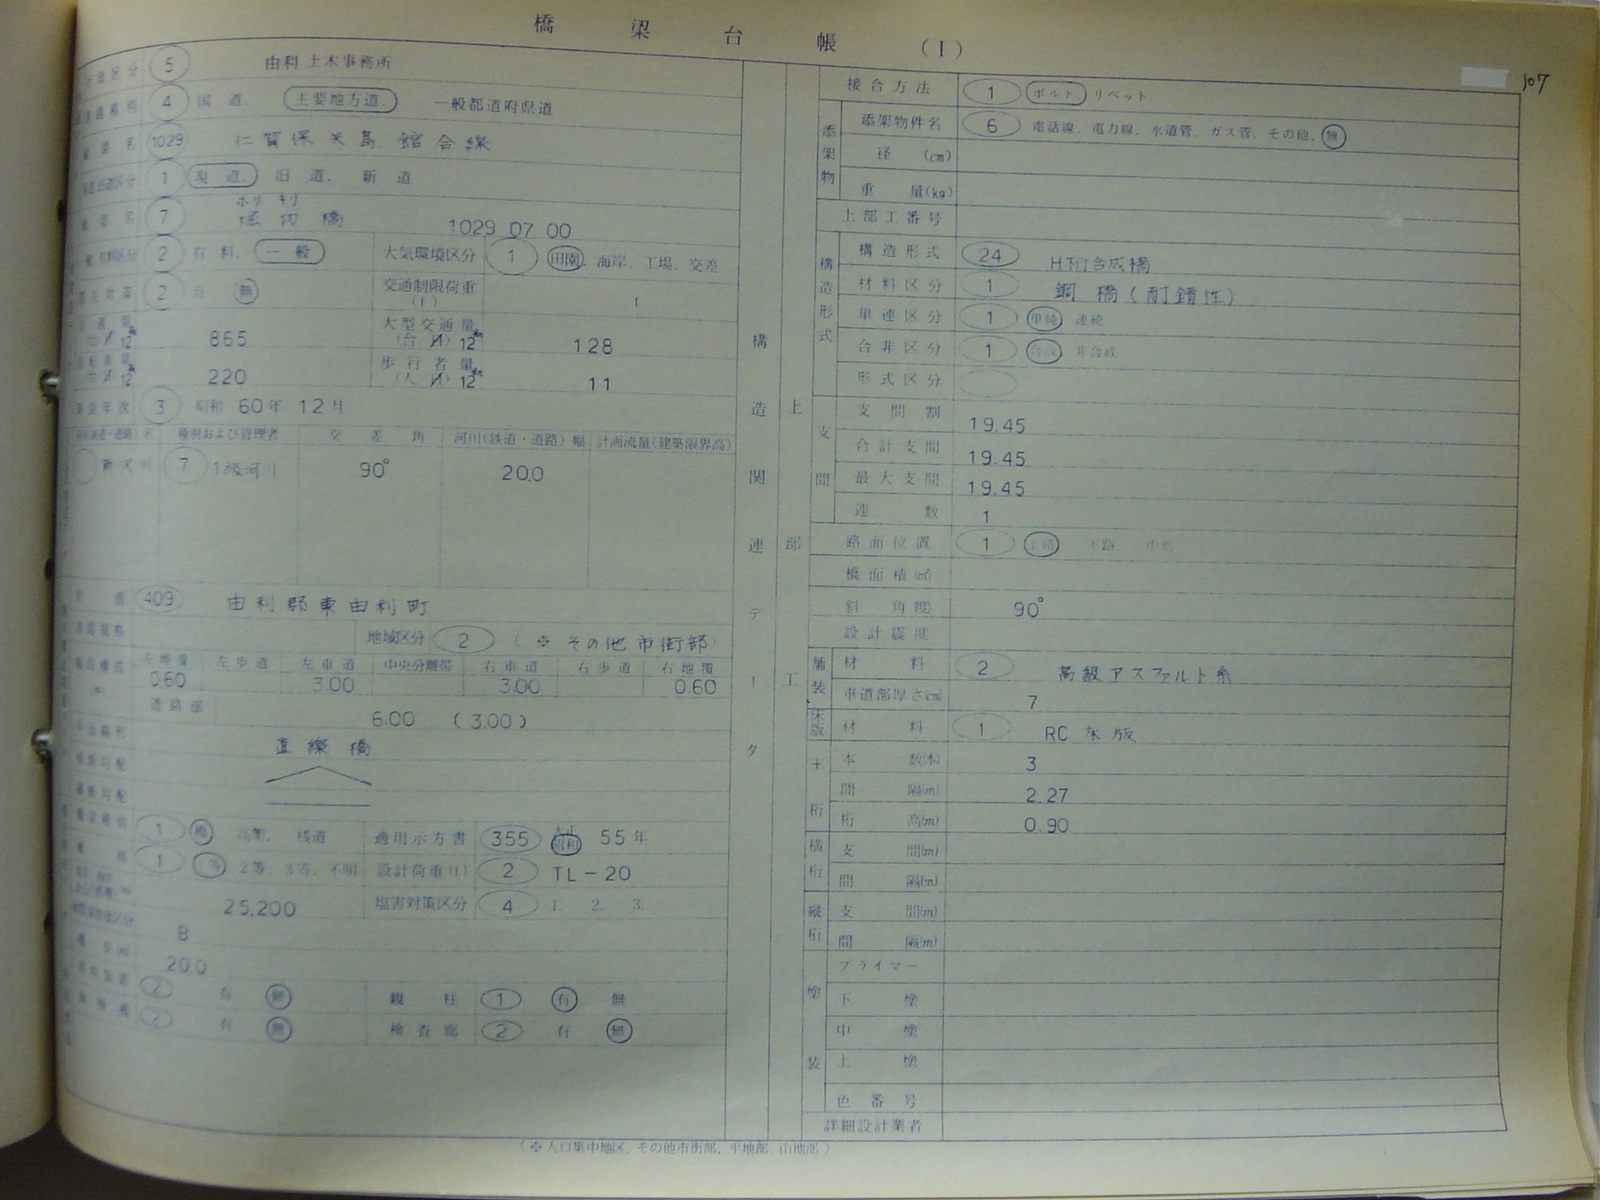 橋梁台帳 (I)
107
区分 5 由利 土木事務所
4 国道. 主要地方道. 一般都道府県道
名 1029 仁賀保矢島館合線
区分 1 現道. 旧道. 新道
ホリ キリ
名 7 堀切橋 1029 07 00
2 有料. 一般 大気環境区分 1 田園. 海岸. 工場. 交差
対策 2 有 無 交通制限荷重 (t) t
12 865 大型交通量 (台/ 12 128
12 220 歩行者量 (人/ 12 11
年次 3 昭和 60年 12月
種別および管理者 交差角 河川(鉄道・道路)幅 計画流量(建築限界高)
7 1級河川 90° 20.0
409 由利郡東由利町
地域区分 2 (※ その他市街部)
左地覆 左歩道 左車道 中央分離帯 右車道 右歩道 右地覆
0.60 3.00 3.00 0.60
道路部 6.00 (3.00)
直線橋
1 橋 高架. 桟道 適用示方書 355 大正 昭和 55年
1 1等 2等. 3等. 不明 設計荷重(t) 2 TL-20
25.200 塩害対策区分 4 1. 2. 3.
B
20.0
2 有 無 親柱 1 有 無
2 有 無 検査廊 2 有 無
構造関連データ
上部工
接合方法 1 ボルト リベット
添架物
添架物件名 6 電話線. 電力線. 水道管. ガス管. その他. 無
径 (cm)
重量(kg)
上部工番号
構造形式
構造形式 24 H桁合成橋
材料区分 1 鋼橋(耐錆性)
単連区分 1 単純 連続
合非区分 1 合成 非合成
形式区分
支間
支間割 19.45
合計支間 19.45
最大支間 19.45
連数 1
路面位置 1 上路 下路 中路
橋面積(㎡)
斜角(度) 90°
設計震度
舗装
材料 2 高級アスファルト系
車道部厚さ(cm) 7
床版 材料 1 RC床版
主桁
本数(本) 3
間隔(m) 2.27
桁高(m) 0.90
横桁
支間(m)
間隔(m)
縦桁
支間(m)
間隔(m)
塗装
プライマー
下塗
中塗
上塗
色番号
詳細設計業者
(※人口集中地区, その他市街部, 平地部, 山地部)